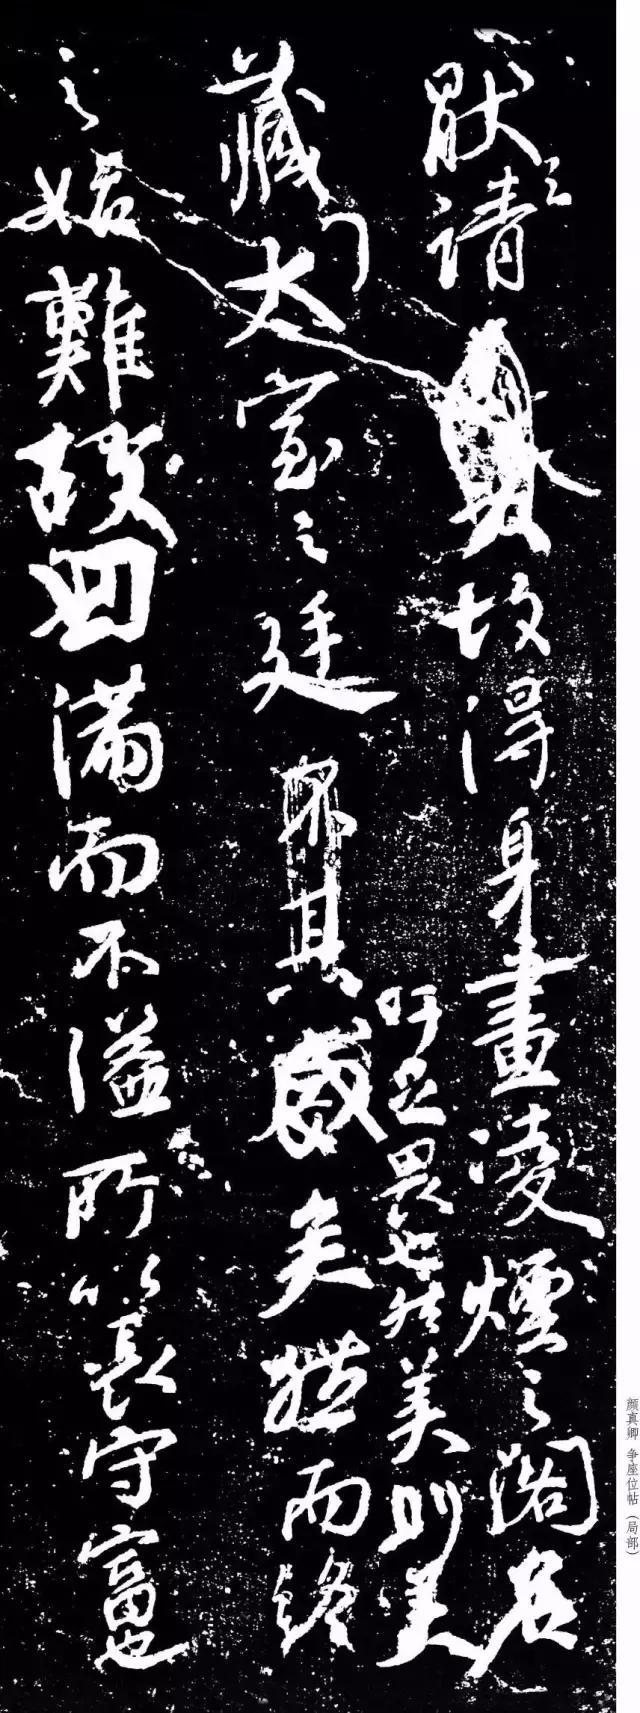 厭之請故得身畫凌煙之閣名
吁足畏也然美則美
藏太室之廷其威矣然而終
之始難故曰滿而不溢所以長守富也
颜真卿 争座位帖（局部）